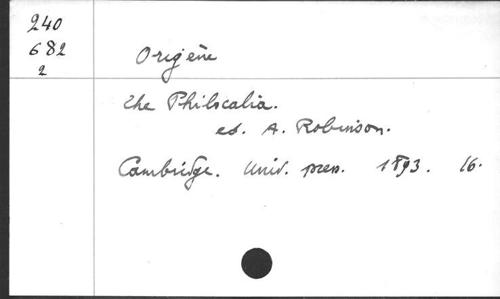 240
682
2
Origène
The Philocalia.
ed. A. Robinson.
Cambridge. Univ. press. 1893. 16.